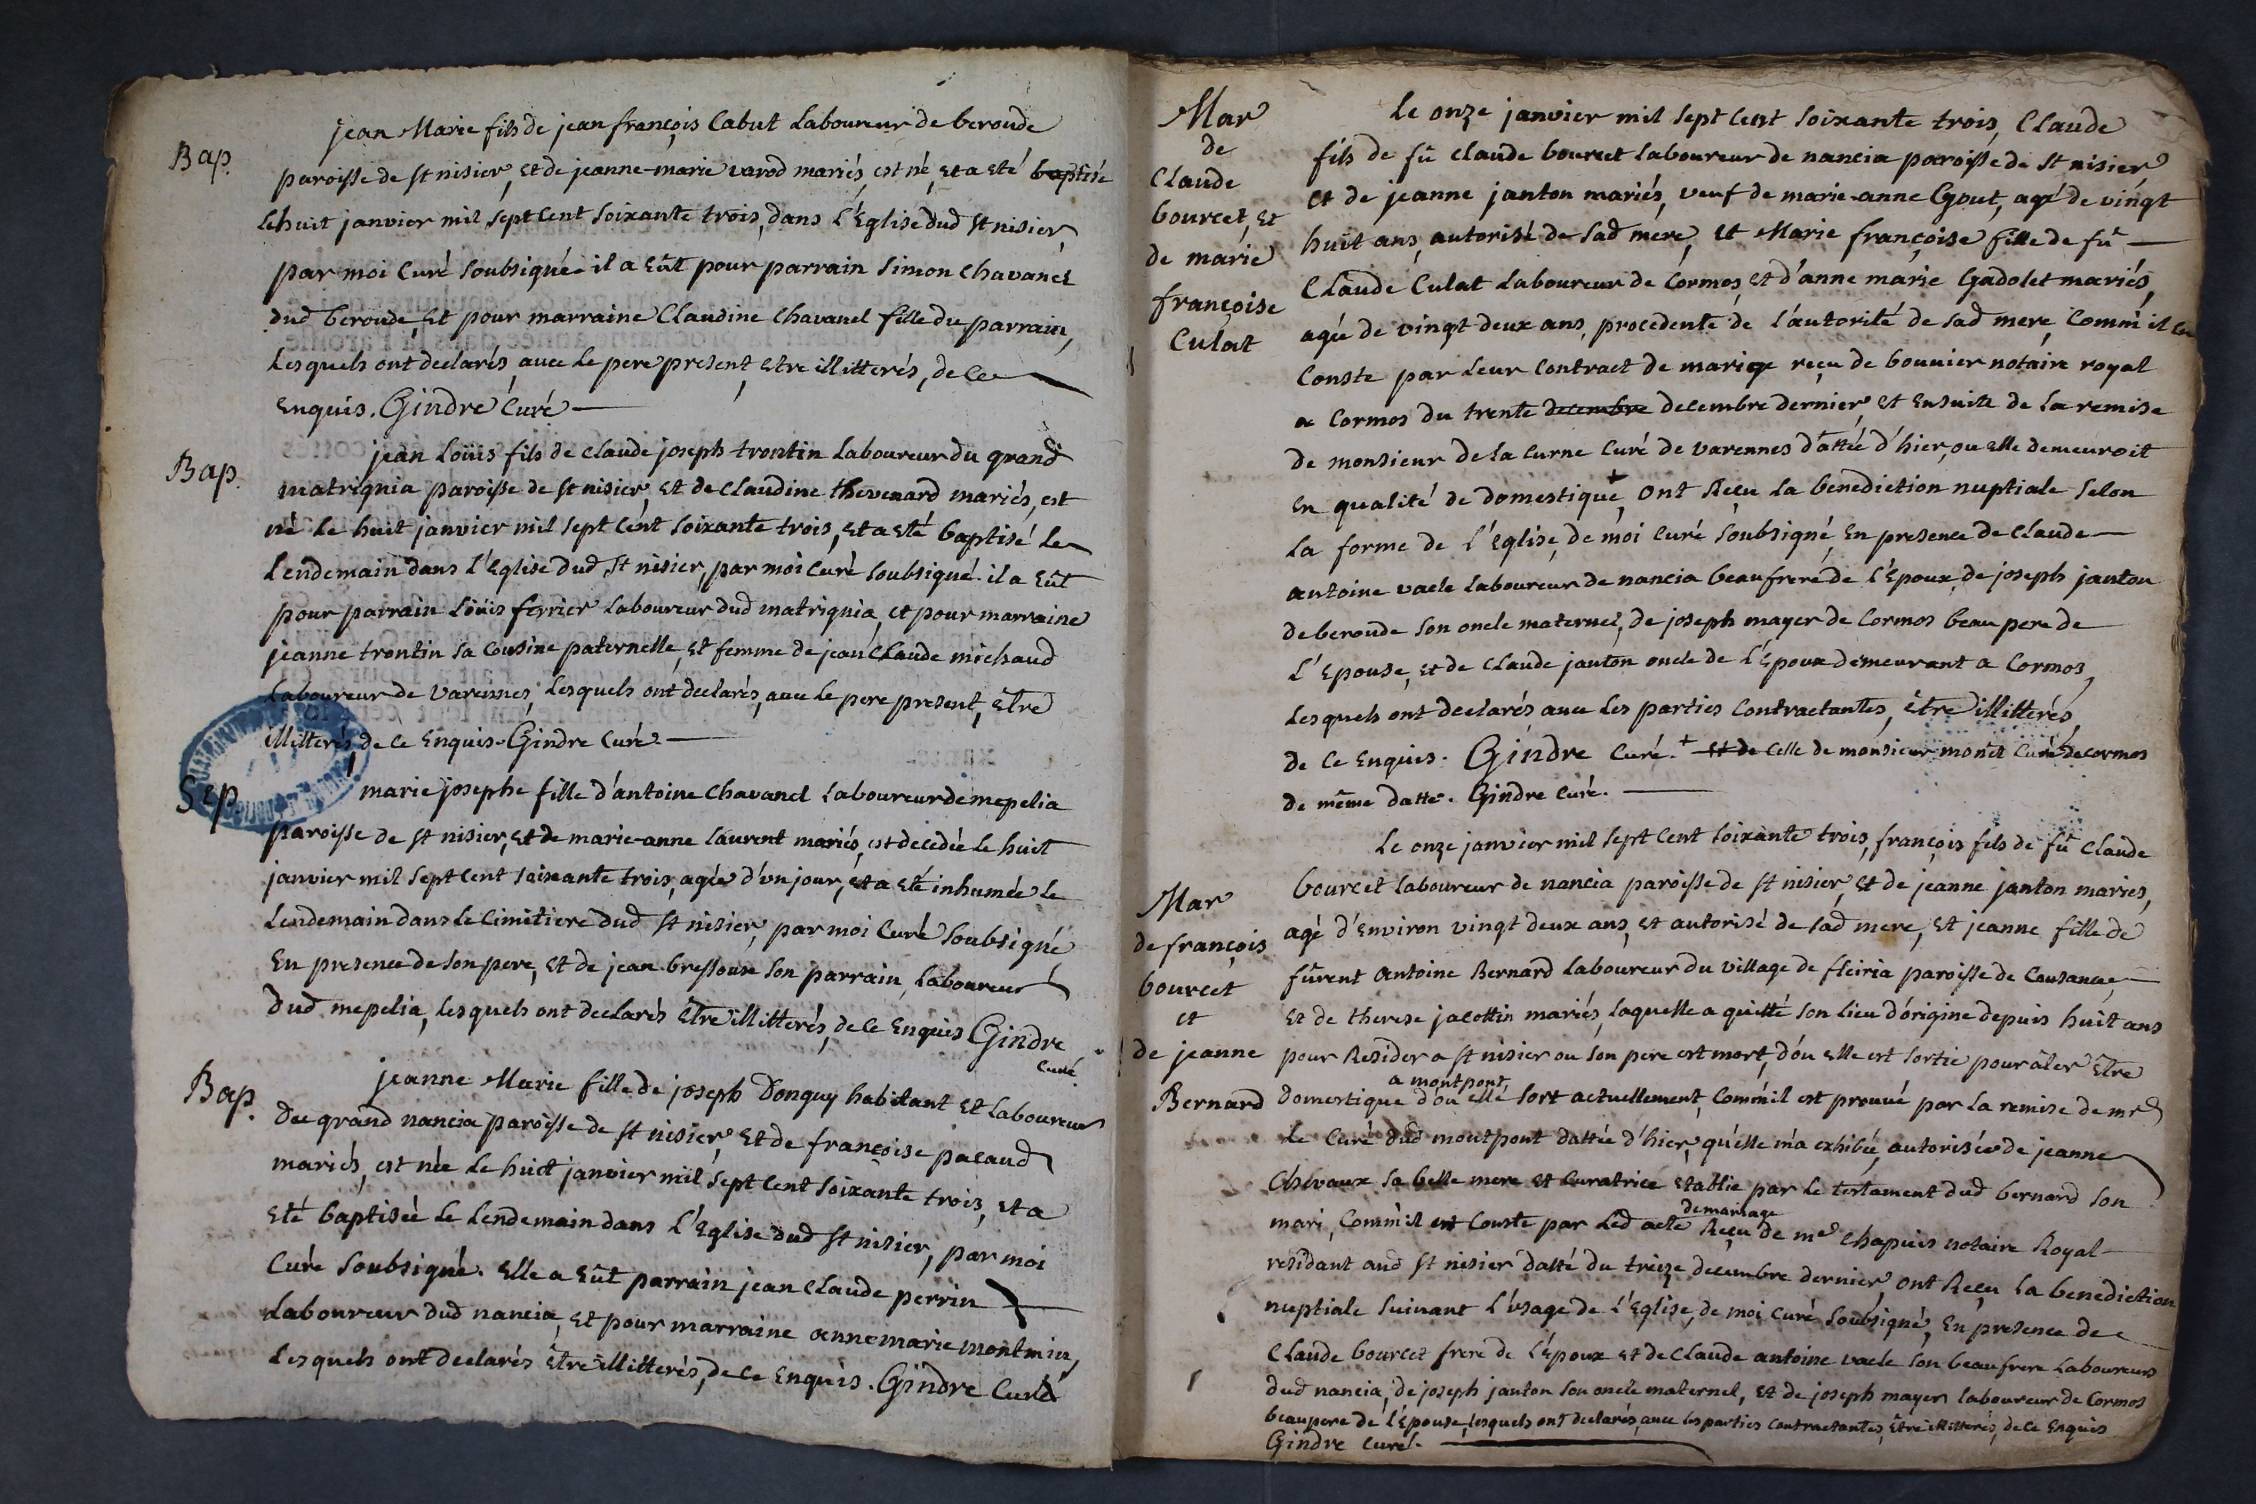 Bap.
jean Marie fils de jean françois Cabut Laboureur de beroude
paroisse de st nisier, et de jeanne-marie varod mariés, est né, et a eté baptisé
le huit janvier mil sept cent soixante trois, dans l'Eglise dud st nisier,
par moi Curé soubsigné. il a Eût pour parrain Simon Chavanel
dud beroude, et pour marraine Claudine Chavanel fille du parrain,
Lesquels ont declarés, avec le pere present, etre illitterés, de ce
Enquis. Gindre Curé
Bap.
jean Loüis fils de claude joseph trontin Laboureur du grand
matrignia paroisse de st nisier, et de claudine thevenard mariés, est
né le huit janvier mil sept cent soixante trois, et a eté baptisé le
Lendemain dans l'Eglise dud st nisier, par moi curé soubsigné. il a Eût
pour parrain Loüis ferrier Laboureur dud matrignia, et pour marraine
jeanne trontin sa Cousine paternelle, et femme de jean claude michaud
Laboureur de varennes, Lesquels ont declarés, avec le pere present, être
illitterés, de ce Enquis. Gindre Curé
Sep
marie josephe fille d'antoine Chavanel Laboureur de mepelia
paroisse de st nisier, et de marie-anne Laurent mariés, est decedée le huit
janvier mil sept cent soixante trois, agée d'vn jour, et a eté inhumée le
Lendemain dans le Cimitiere dud st nisier, par moi Curé soubsigné
En presence de son pere, et de jean bressoux son parrain, Laboureur
dud mepelia, lesquels ont declarés Etre illitterés, de ce Enquis Gindre
Curé.
Bap.
jeanne Marie fille de joseph Donguy habitant et Laboureur
du grand nancia paroisse de st nisier, et de françoise pacaud
mariés, est née le huit janvier mil sept cent soixante trois, et a
eté baptisée le Lendemain dans l'Eglise dud st nisier, par moi
Curé soubsigné. Elle a Eût parrain jean claude perrin
Laboureur dud nancia, et pour marraine anne marie montmin,
Lesquels ont declarés être illitterés, de ce Enquis. Gindre Curé
Mar
de
Claude
bourcet, et
de marie
françoise
Culat
Le onze janvier mil sept cent soixante trois, Claude
fils de fû claude bourcet laboureur de nancia paroisse de st nisier
et de jeanne janton mariés, veuf de marie-anne Gout, agé de vingt
huit ans, autorisé de sad mere, et Marie françoise fille de fû
Claude Culat Laboureur de Cormos, et d'anne marie Gadolet mariés,
agée de vingt deux ans, procedente de l'autorité de sad mere, Comm'il
Conste par leur Contract de mariage reçu de bouvier notaire royal
a Cormos du trente decembre decembre dernier, et Ensuite de la remise
de monsieur de la Curne Curé de varennes dattée d'hier, ou elle demeuroit
en qualité de domestique +, ont Reçu la benediction nuptiale selon
la forme de l'Eglise, de moi Curé soubsigné, En presence de Claude
antoine vacle Laboureur de nancia beaufrere de l'Epoux, de joseph janton
de beroude son oncle maternel, de joseph mayer de Cormos beau pere de
l'Epouse, et de claude janton oncle de l'Epoux demeurant a Cormos,
Lesquels ont declarés avec les parties Contractantes, être illitterés,
de ce Enquis. Gindre Curé. + et de Celle de monsieur monet Curé de cormos
de même datte. Gindre Curé.
Mar
de françois
bourcet
et
de jeanne
Bernard
Le onze janvier mil sept cent soixante trois, françois fils de fû Claude
bourcet laboureur de nancia paroisse de st nisier, et de jeanne janton mariés,
agé d'Environ vingt deux ans, et autorisé de sad mere, et jeanne fille de
fûrent antoine Bernard laboureur du village de fleiria paroisse de Cousance,
et de therese jacottin mariés, laquelle a quitté son lieu d'origine depuis huit ans
pour Resider a st nisier ou son pere est mort, d'ou elle est sortie pour âler être
a montpont,
domestique d'ou elle sort actuellement, Comm'il est prouvé par la remise de mr
le Curé dud montpont dattée d'hier, qu'elle m'a exhibée, autorisée de jeanne
Chevaux sa belle mere et Curatrice etablie par le testament dud bernard son
de mariage
mari, Comm'il est Conste par led acte Reçu de me Chapuis notaire Royal
residant aud st nisier datté du treize decembre dernier, ont Reçu la benediction
nuptiale suivant l'vsage de l'Eglise, de moi Curé soubsigné, En presence de
Claude bourcet frere de l'Epoux et de Claude antoine vacle son beaufrere Laboureurs
dud nancia, de joseph janton son oncle maternel, et de joseph mayer laboureur de Cormos
beaupere de l'Epouse, lesquels ont declarés, avec les parties Contractantes, être illitterés, de ce Enquis
Gindre Curé.